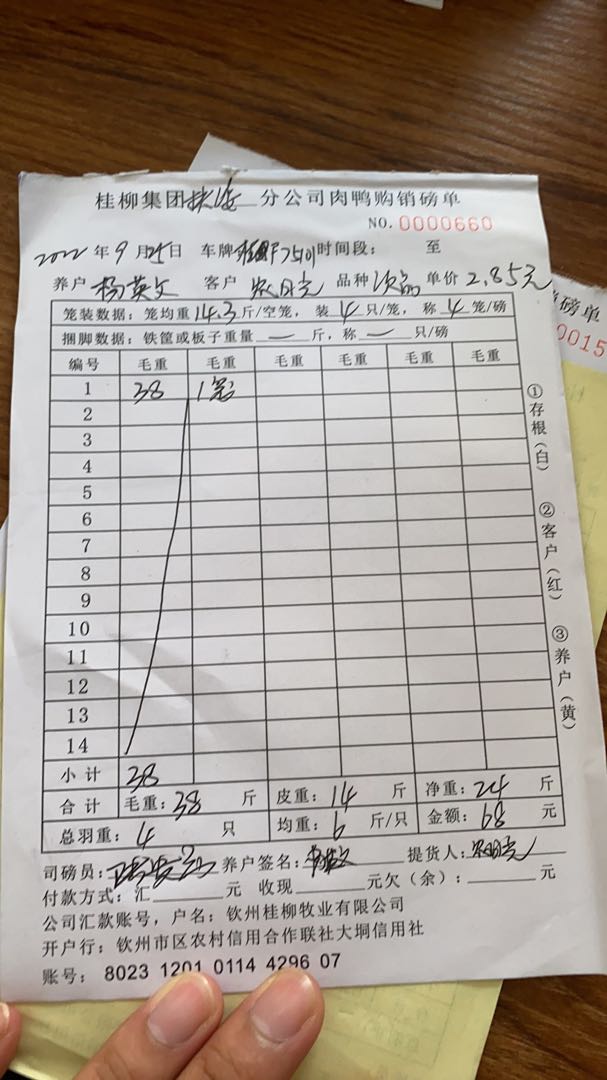 桂柳集团 分公司肉鸭购销磅单
NO. 0000660
2022年9月24日 车牌 F75J01 时间段: 至
养户 杨英文 客户 农月亮 品种 次品 单价 2.85元
笼装数据: 笼均重 14.3 斤/空笼, 装 4 只/笼, 称 4 笼/磅
捆脚数据: 铁筐或板子重量 — 斤, 称 — 只/磅
编号 毛重 毛重 毛重 毛重 毛重 毛重
1 38 1笼
2
3
4
5
6
7
8
9
10
11
12
13
14
小计 38
合计 毛重: 38 斤 皮重: 14 斤 净重: 24 斤
总羽重: 4 只 均重: 6 斤/只 金额: 68 元
司磅员: 养户签名: 提货人: 农月亮
付款方式: 汇 元 收现 元欠(余): 元
公司汇款账号, 户名: 钦州桂柳牧业有限公司
开户行: 钦州市区农村信用合作联社大垌信用社
账号: 8023 1201 0114 4296 07
①存根(白)
②客户(红)
③养户(黄)
磅单
0015